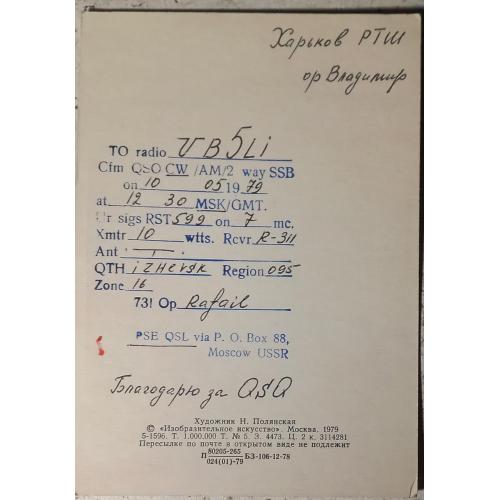 Харьков РТШ
ор Владимир
TO radio UB5Li
Cfm QSO CW /AM/2 way SSB
on 10 05 1979
at 12 30 MSK/GMT.
Ur sigs RST 599 on 7 mc.
Xmtr 10 wtts. Rcvr R-311
Ant T
QTH iZHEVSK Region 095
Zone 16
73! Op Rafail
PSE QSL via P. O. Box 88,
Moscow USSR
Благодарю за QSO
Художник Н. Полянская
© «Изобразительное искусство». Москва. 1979
5-1596. Т. 1.000.000 Т. № 5. З. 4473. Ц. 2 к. 3114281
Пересылке по почте в открытом виде не подлежит
П 80205-265 БЗ-106-12-78
024(01)-79